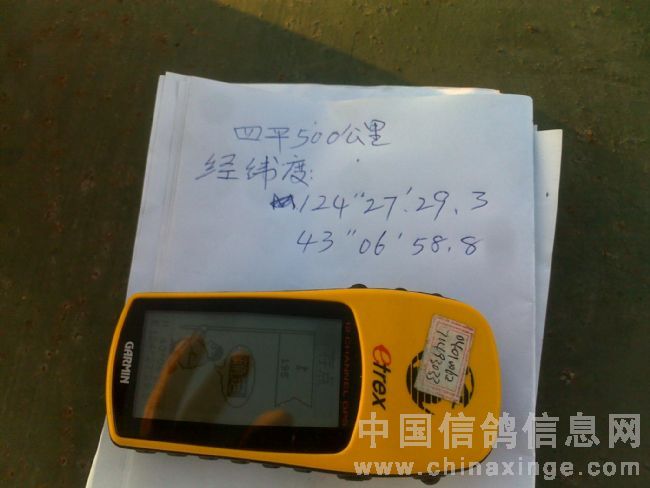 四平500公里
经纬度:
124"27'.29.3
43"06'58.8
GARMIN
12 CHANNEL GPS
etrex
中国信鸽信息网
www.chinaxinge.com